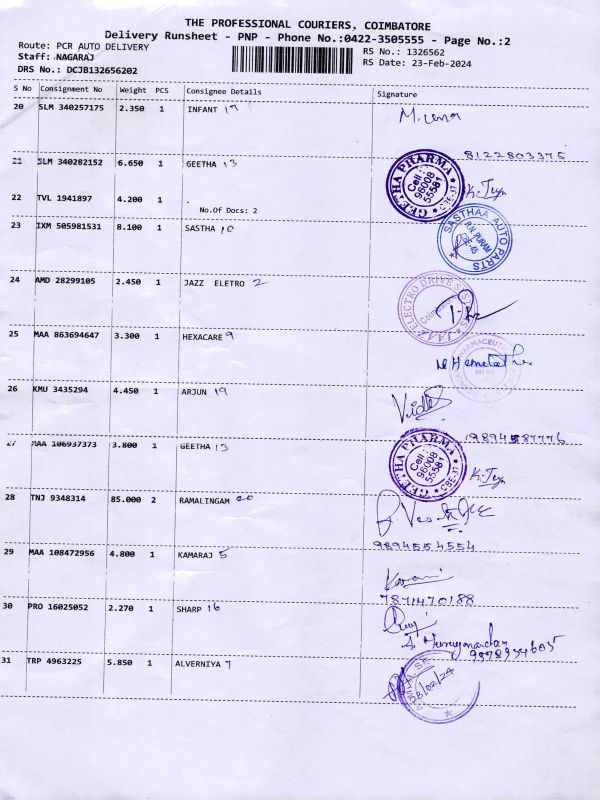 THE PROFESSIONAL COURIERS, COIMBATORE
Delivery Runsheet - PNP - Phone No.:0422-3505555 - Page No.:2
Route: PCR AUTO DELIVERY
RS No.: 1326562
Staff: NAGARAJ
RS Date: 23-Feb-2024
DRS No.: DCJB132656202
S No Consignment No Weight PCS Consignee Details Signature
20 SLM 340257175 2.350 1 INFANT 17
21 SLM 340282152 6.650 1 GEETHA 13 8122803375
GEETHA PHARMA CBE-37 Cell: 96008 55581
22 TVL 1941897 4.200 1 .
No.Of Docs: 2
23 IXM 505981531 8.100 1 SASTHA 10
SASTHAA AUTO PARTS R.N.PURAM CBE-45
24 AMD 28299105 2.450 1 JAZZ ELETRO 2
25 MAA 863694647 3.300 1 HEXACARE 9
26 KMU 3435294 4.450 1 ARJUN 19
9894587776
27 MAA 106937373 3.800 1 GEETHA 13
GEETHA PHARMA CBE-37 Cell: 96008 55581
28 TNJ 9348314 85.000 2 RAMALINGAM 20
9894554554
29 MAA 108472956 4.800 1 KAMARAJ 5
7871470188
30 PRO 16025052 2.270 1 SHARP 16
31 TRP 4963225 5.850 1 ALVERNIYA 7